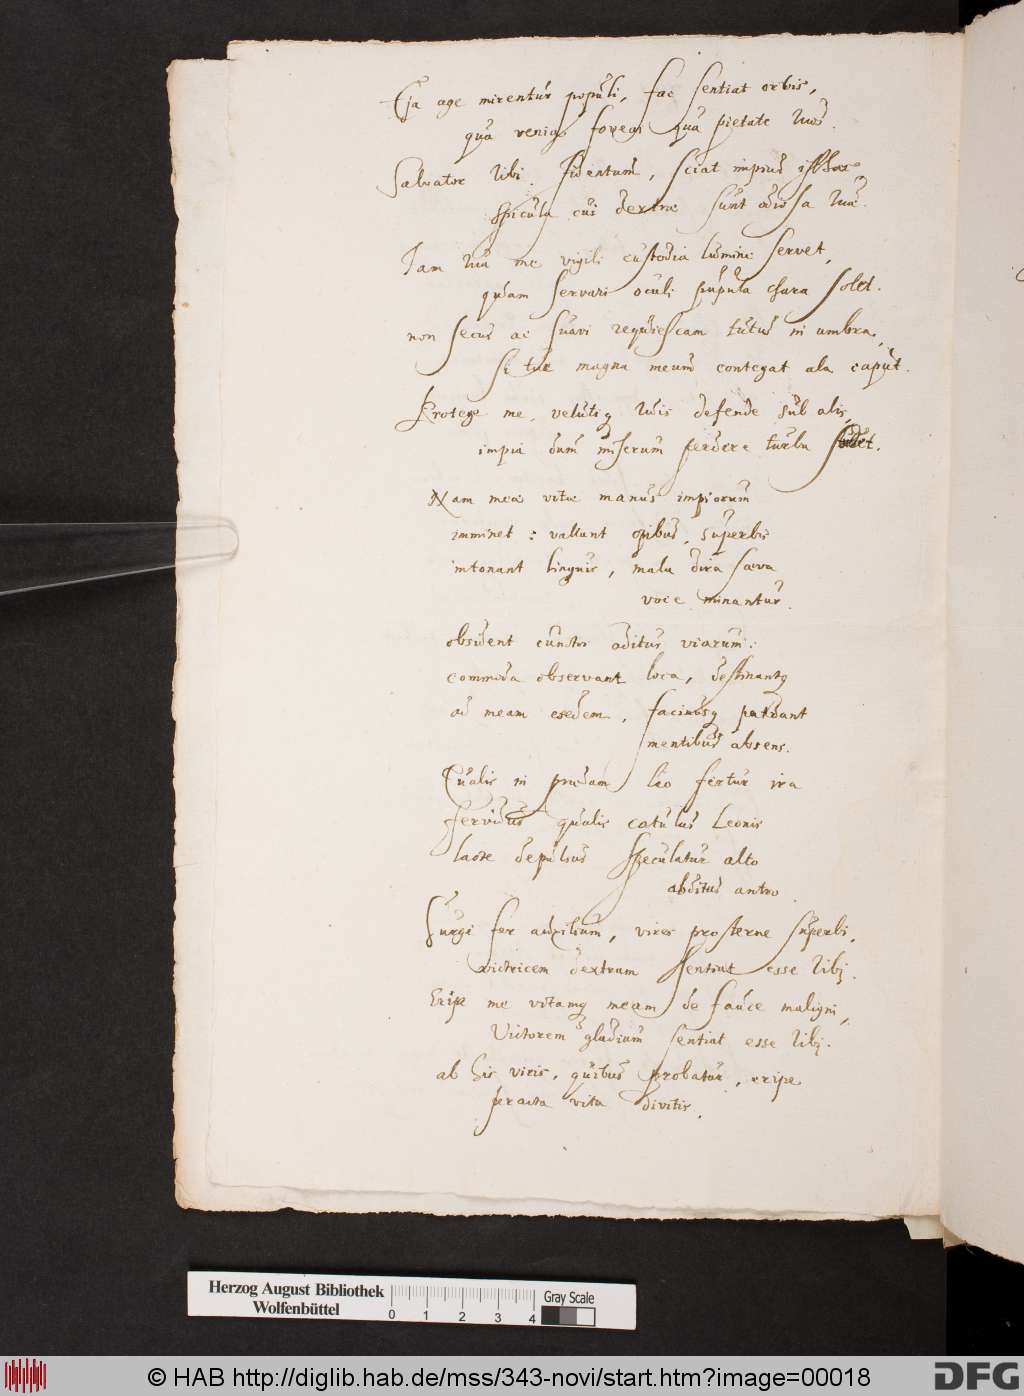 Eja age mirentur populi, fac sentiat orbis,
qua venia foveas qua pietate tuos.
Salvator tibi fidentum, sciat impius iste
spicula cui dextrae sunt odiosa tuae.
Iam tua me vigili custodia lumine servet,
quam servari oculi pupula chara solet.
non secus ac suavi requiescam tutus in umbra,
Si tua magna meum contegat ala caput.
Protege me, velutiq tuis defende sub alis,
impia dum miserum perdere turba
Nam meae vitae manus impiorum
imminet: vallant opibus, superbis
intonant linguis, mala dira saeva
voce minantur.
obsident cunctos aditus viarum:
commoda observant loca, destinantq
ad meam caedem, facinusq patrant
mentibus absens.
Qualis in praedam leo fertur ira
fervidus qualis catulus Leonis
lacte depulsus speculatur alto
abditus antro.
Surgi fer auxilium, vires prosterne superbi,
victricem dextram sentiat esse tibi.
Eripe me vitamq meam de fauce maligni,
Victorem gladium sentiat esse tibi.
ab his viris, quibus probatur, eripe
peracta vita divitis.
Herzog August Bibliothek
Wolfenbüttel
0 1 2 3 4
Gray Scale
© HAB http://diglib.hab.de/mss/343-novi/start.htm?image=00018
DFG